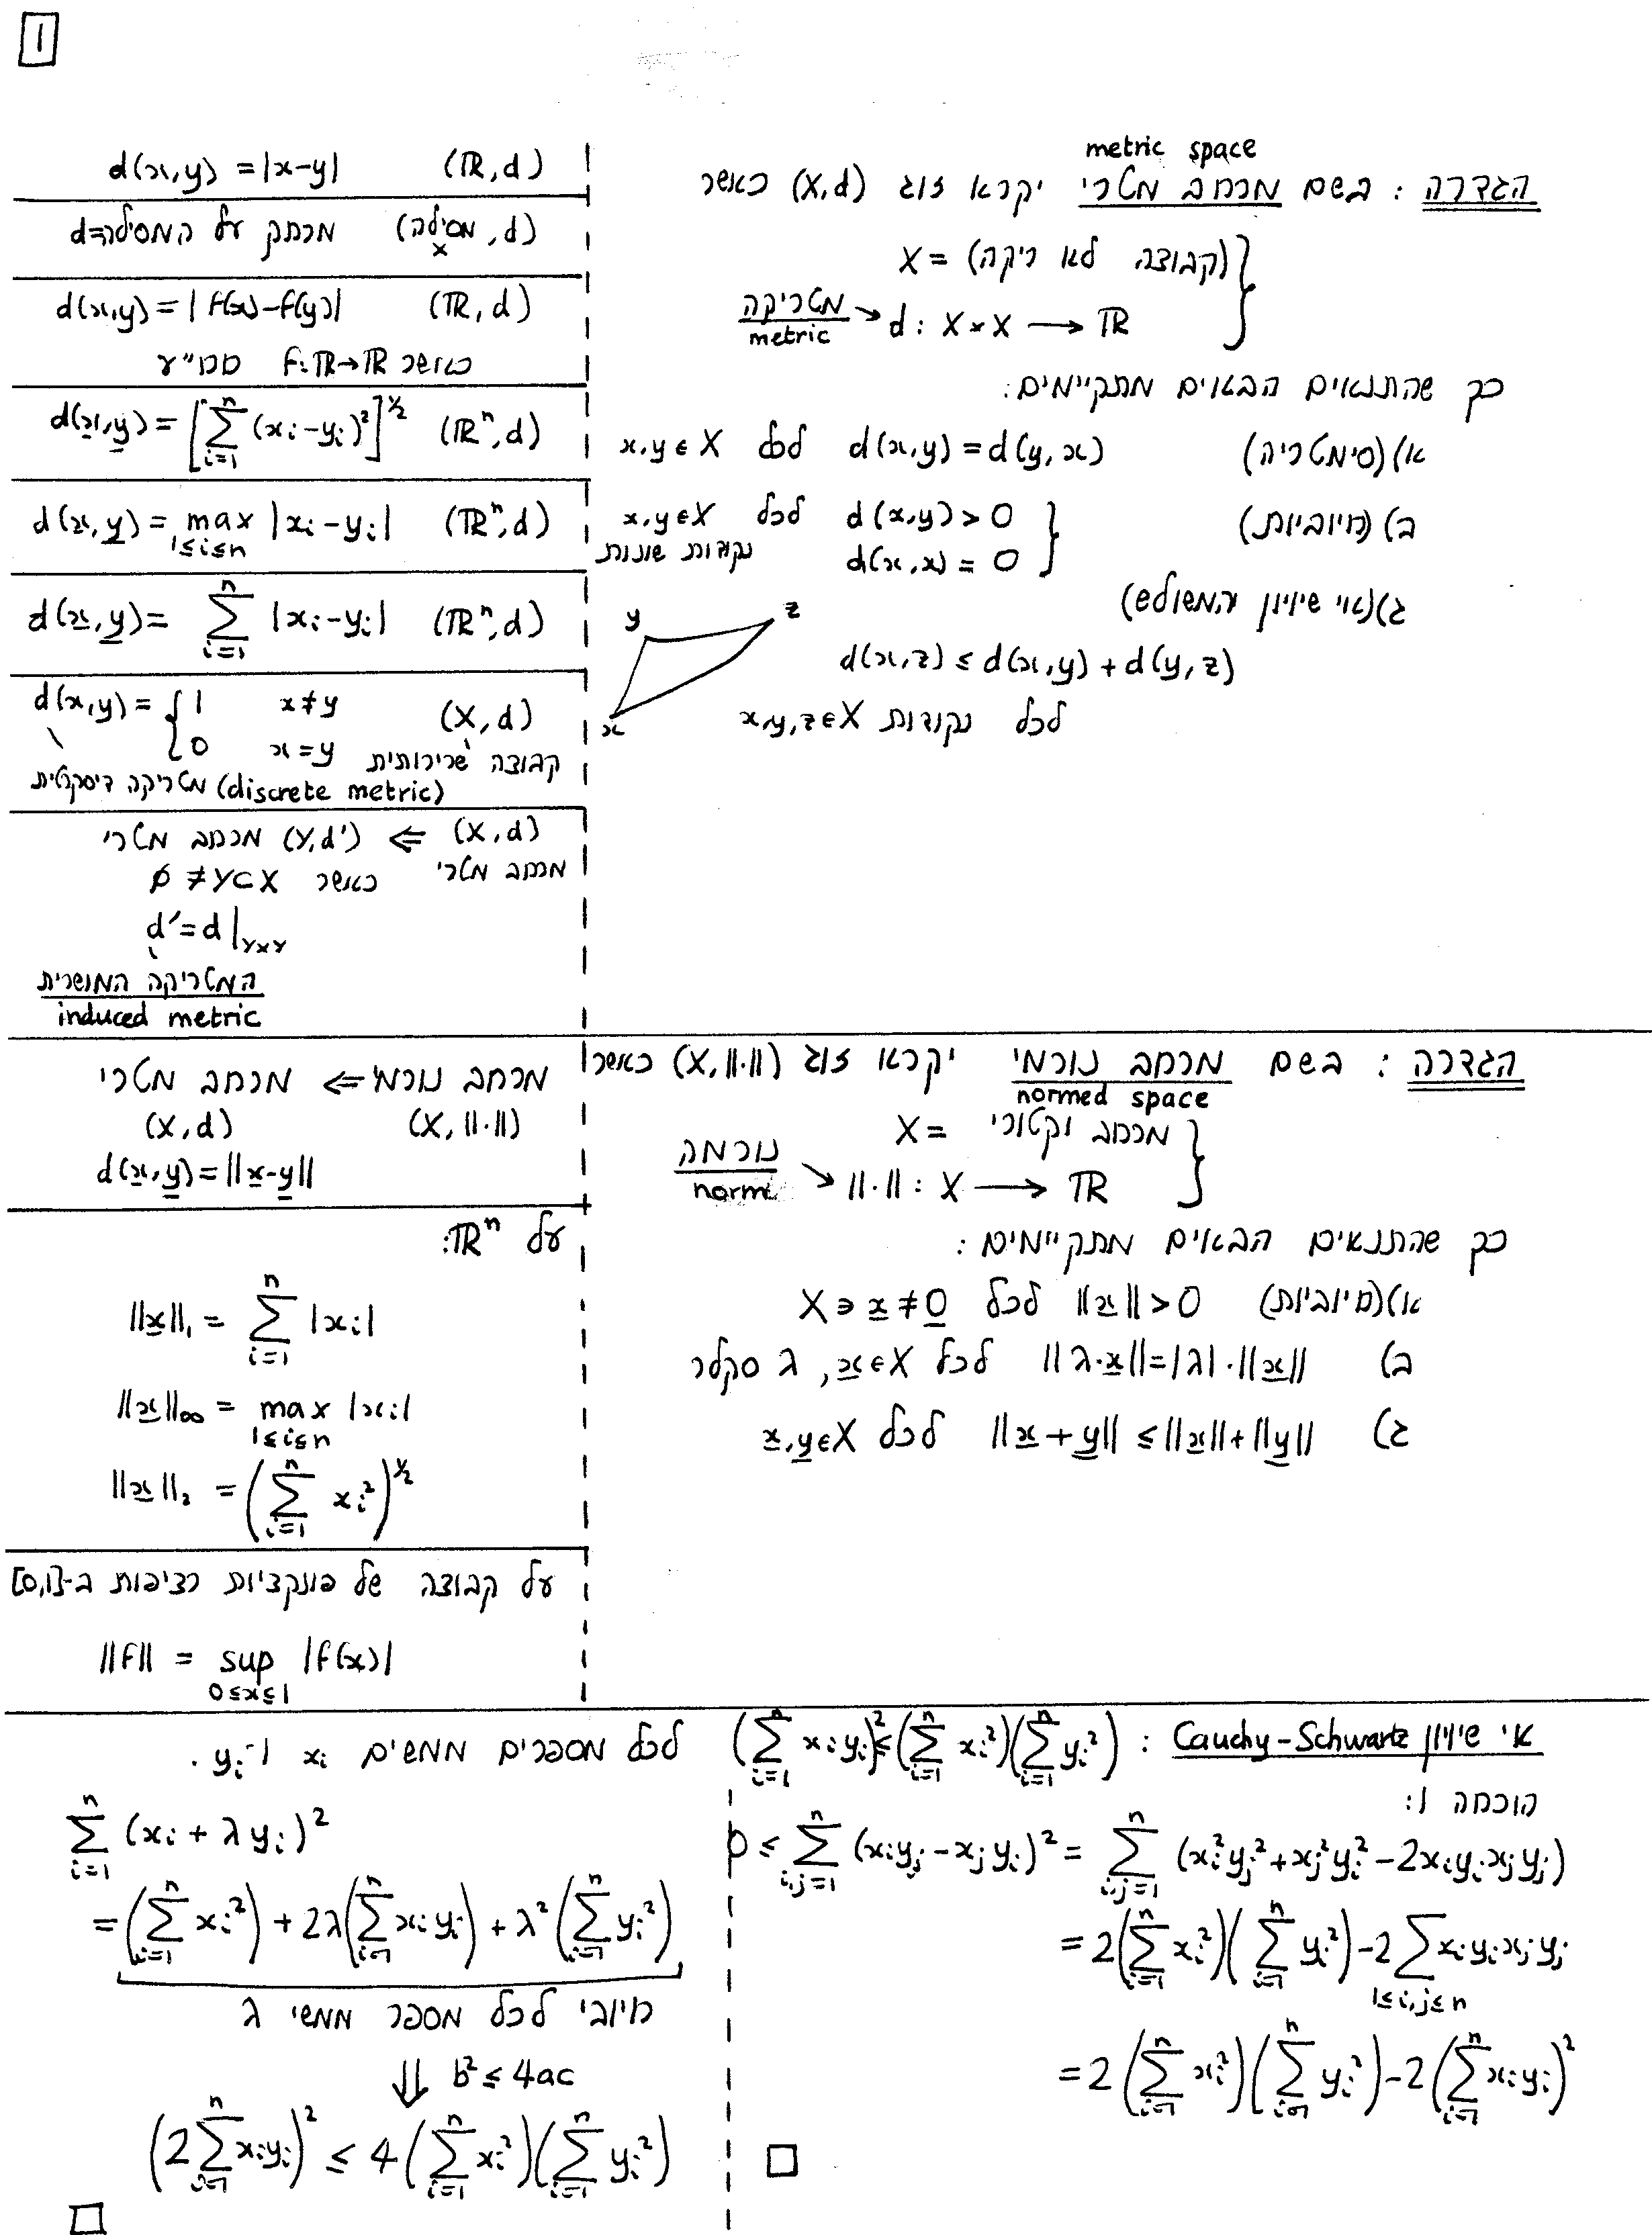 1
metric space
הגדרה : בשם מרחב מטרי יקרא זוג (X,d) כאשר
X = (קבוצה לא ריקה)
מטריקה
metric
d : X × X → ℝ
כך שהתנאים הבאים מתקיימים:
א) (סימטריה) d(x,y) = d(y,x) לכל x,y ∈ X
ב) (חיוביות) d(x,y) > 0 לכל x,y ∈ X
d(x,x) = 0 נקודות שונות
ג) (אי שיויון המשולש)
y z
x
d(x,z) ≤ d(x,y) + d(y,z)
לכל נקודות x,y,z ∈ X
(ℝ, d) d(x,y) = |x-y|
(מסילה, d) d = מרחק על המסילה
x
(ℝ, d) d(x,y) = |f(x)-f(y)|
כאשר f: ℝ→ℝ חח"ע
(ℝⁿ, d) d(x,y) = [∑_{i=1}^{n} (xᵢ-yᵢ)²]^{1/2}
(ℝⁿ, d) d(x,y) = max_{1≤i≤n} |xᵢ-yᵢ|
(ℝⁿ, d) d(x,y) = ∑_{i=1}^{n} |xᵢ-yᵢ|
(X, d) d(x,y) = { 1 x≠y
0 x=y
קבוצה שרירותית
מטריקה דיסקרטית (discrete metric)
(X,d) ⇒ (Y,d') מרחב מטרי
מרחב מטרי כאשר ∅ ≠ Y ⊂ X
d' = d|_{Y×Y}
המטריקה המושרית
induced metric
הגדרה : בשם מרחב נורמי יקרא זוג (X, ||·||) כאשר
normed space
X = מרחב וקטורי
נורמה
norm
||·|| : X → ℝ
כך שהתנאים הבאים מתקיימים :
א) (חיוביות) ||x|| > 0 לכל X ∋ x ≠ 0
ב) ||λ·x|| = |λ|·||x|| לכל x∈X, λ סקלר
ג) ||x+y|| ≤ ||x|| + ||y|| לכל x,y∈X
מרחב נורמי ⇒ מרחב מטרי
(X, ||·||) (X,d)
d(x,y) = ||x-y||
על ℝⁿ:
||x||₁ = ∑_{i=1}^{n} |xᵢ|
||x||∞ = max_{1≤i≤n} |xᵢ|
||x||₂ = (∑_{i=1}^{n} xᵢ²)^{1/2}
על קבוצה של פונקציות רציפות ב-[0,1]
||f|| = sup_{0≤x≤1} |f(x)|
אי שיויון Cauchy-Schwartz : (∑_{i=1}^{n} xᵢyᵢ)² ≤ (∑_{i=1}^{n} xᵢ²)(∑_{i=1}^{n} yᵢ²) לכל מספרים ממשים xᵢ ו-yᵢ.
הוכחה 1:
0 ≤ ∑_{i,j=1}^{n} (xᵢyⱼ - xⱼyᵢ)² = ∑_{i,j=1}^{n} (xᵢ²yⱼ² + xⱼ²yᵢ² - 2xᵢyᵢxⱼyⱼ)
= 2(∑_{i=1}^{n} xᵢ²)(∑_{i=1}^{n} yᵢ²) - 2∑_{1≤i,j≤n} xᵢyᵢxⱼyⱼ
= 2(∑_{i=1}^{n} xᵢ²)(∑_{i=1}^{n} yᵢ²) - 2(∑_{i=1}^{n} xᵢyᵢ)²
□
∑_{i=1}^{n} (xᵢ + λyᵢ)²
= (∑_{i=1}^{n} xᵢ²) + 2λ(∑_{i=1}^{n} xᵢyᵢ) + λ²(∑_{i=1}^{n} yᵢ²)
חיובי לכל מספר ממשי λ
⇓ b² ≤ 4ac
(2∑_{i=1}^{n} xᵢyᵢ)² ≤ 4(∑_{i=1}^{n} xᵢ²)(∑_{i=1}^{n} yᵢ²)
□